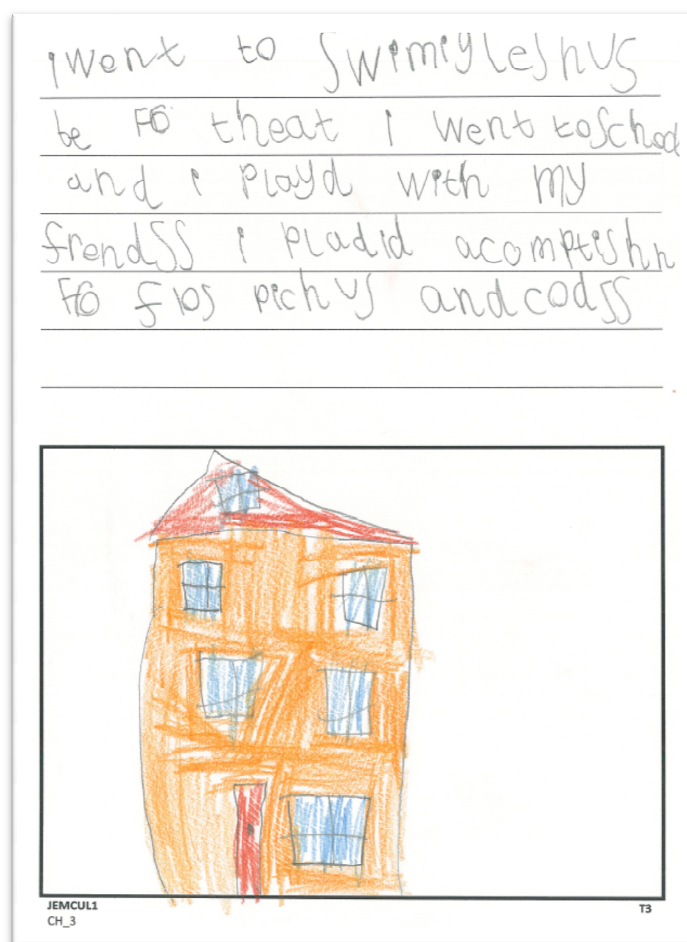 iwent to swimiyleshus
be Fo theat i went toSchool
and i Playd with my
frendss i Pladid acomptishn
Fo fios pichus andcodss
JEMCUL1
CH_3
T3